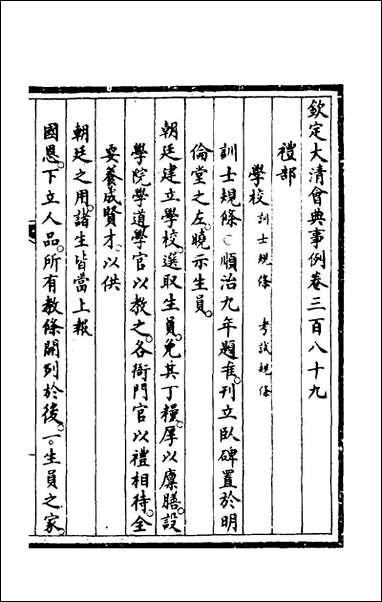 欽定大清會典事例卷三百八十九
禮部
學校訓士規條 考試規條
訓士規條○順治九年題准。刊立臥碑置於明
倫堂之左。曉示生員。
朝廷建立學校。選取生員。免其丁糧。厚以廩膳。設
學院學道學官以教之。各衙門官以禮相待。全
要養成賢才。以供
朝廷之用。諸生皆當上報
國恩。下立人品。所有教條開列於後。一。生員之家。